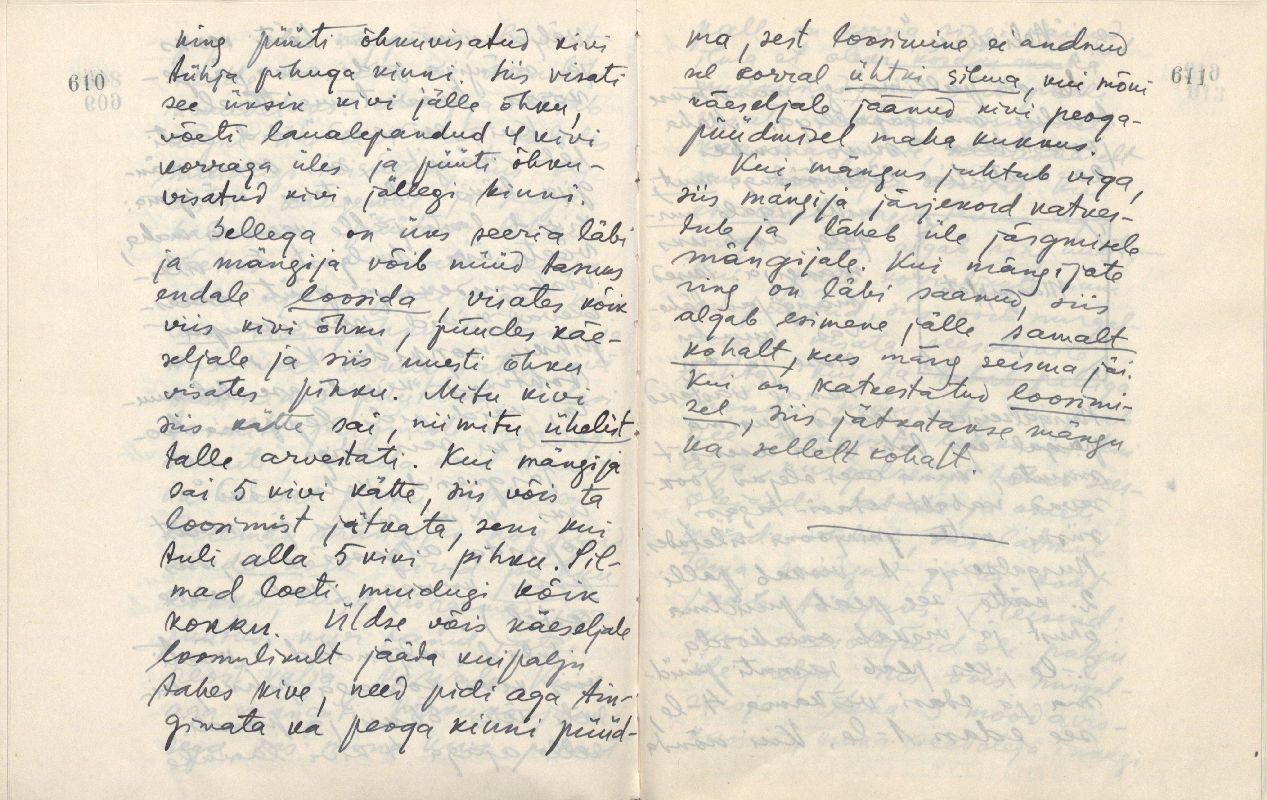 610
ning püüti õhkuvisatud kivi
tühja pihuga kinni. Siis visati
see üksik kivi jälle õhku,
võeti lauale pandud 4 kivi
korraga üles ja püüti õhku-
visatud kivi jällegi kinni.
Sellega on üks seeria läbi
ja mängija võib nüüd tasuks
endale loosida, visates kõik
viis kivi õhku, püüdes käe-
seljale ja siis uuesti õhku
visates pihku. Mitu kivi
siis kätte sai, niimitu ühelist
talle arvestati. Kui mängija
sai 5 kivi kätte, siis võis ta
loosimist jätkata, seni kui
tuli alla 5 kivi pihku. Sil-
mad loeti muidugi kõik
kokku. Üldse võis käeseljale
loomulikult jääda kuipalju
tahes kive, need pidi aga tin-
gimata ka peoga kinni püüd-
611
ma, sest loosimine ei andnud
sel korral ühtki silma, kui mõni
käeseljale jäänud kivi peoga-
püüdmisel maha kukkus.
Kui mängus juhtub viga,
siis mängija järjekord katkes-
tub ja läheb üle järgmisele
mängijale. Kui mängijate
ring on läbi saanud, siis
algab esimene jälle samalt
kohalt, kus mäng seisma jäi.
Kui on katkestatud loosimi-
sel, siis jätkatakse mängu
ka sellelt kohalt.